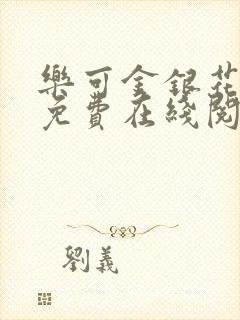 樂可金銀花
免費在綫閱
劉義